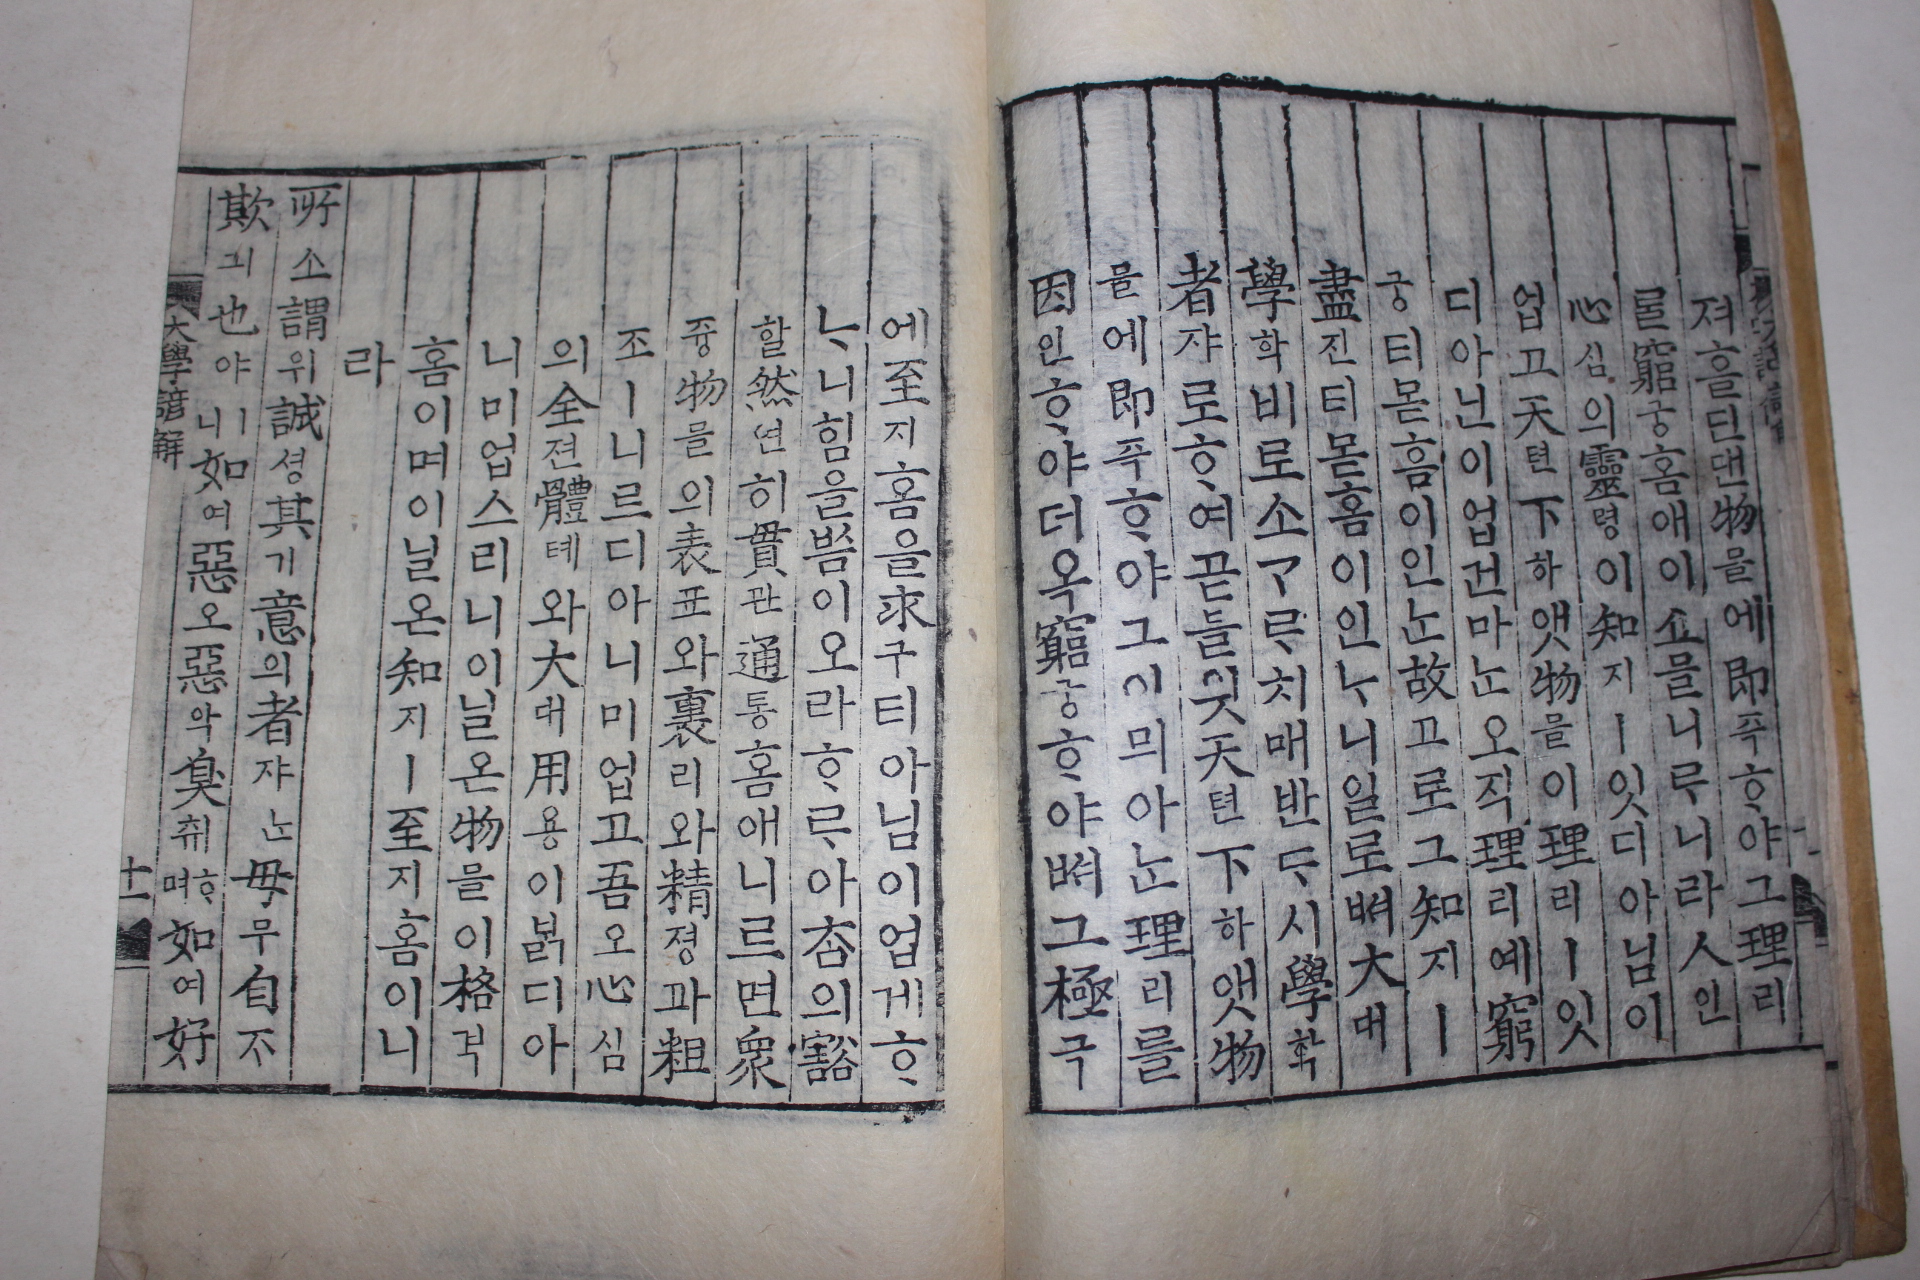 져흘딘댄物믈에卽즉ᄒᆞ야그理리
롤窮궁홈애이쇼믈니ᄅᆞ니라人인
心심의靈령이知지ㅣ잇디아님이
업고天텬下하앳物믈이理리ㅣ잇
디아닌이업건마ᄂᆞᆫ오직理리예窮
궁티몯흠이인ᄂᆞᆫ故고로그知지ㅣ
盡진티몯홈이인ᄂᆞ니일로ᄡᅥ大대
學학비로소ᄀᆞᄅᆞ치매반ᄃᆞ시學학
者쟈로ᄒᆞ여곧믈읫天텬下하앳物
믈에卽즉ᄒᆞ야그이믜아ᄂᆞᆫ理리를
因인ᄒᆞ야더옥窮궁ᄒᆞ야ᄡᅥ그極극
에至지홈을求구티아님이업게ᄒᆞ
ᄂᆞ니힘을ᄡᅳᆷ이오라ᄒᆞᄅᆞ아춤의豁
할然연히貫관通통홈애니르면衆
즁物믈의表표와裏리와精졍과粗
조ㅣ니르디아니미업고吾오心심
의全젼體톄와大대用용이볽디아
니미업스리니이닐온物믈이格격
홈이며이닐온知지ㅣ至지홈이니
라
所소謂위誠셩其기意의者쟈ᄂᆞᆫ毋무自ᄌᆞ
欺긔也야ㅣ니如여惡오惡악臭취ᄒᆞ며如여好
大學諺解 十一